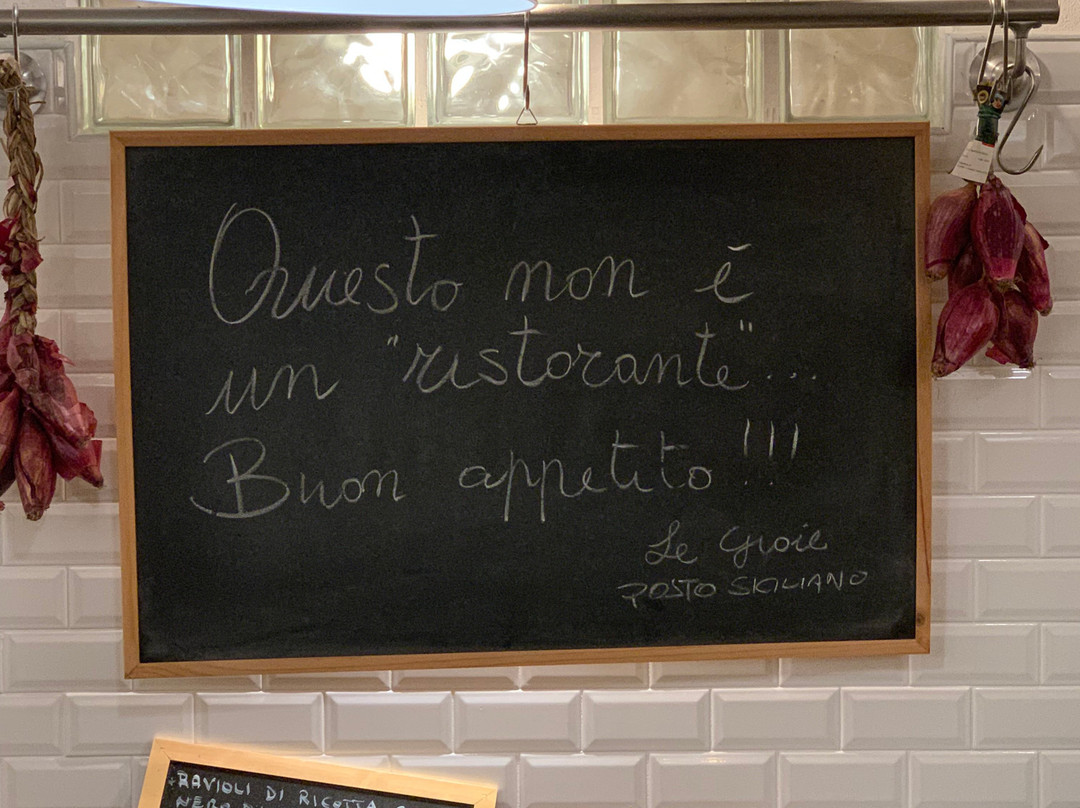 Questo non è
un "ristorante"...
Buon appetito!!!
Le Gioie
POSTO SICILIANO
RAVIOLI DI RICOTTA
NERO